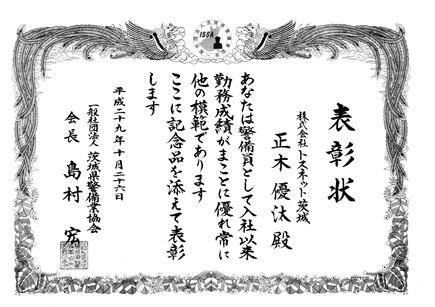 ISSA
表彰状
株式会社トスネット茨城
正木 優汰 殿
あなたは警備員として入社以来
勤務成績がまことに優れ常に
他の模範であります
ここに記念品を添えて表彰
します
平成二十九年十月二十六日
一般社団法人 茨城県警備業協会
会長 島村 宏